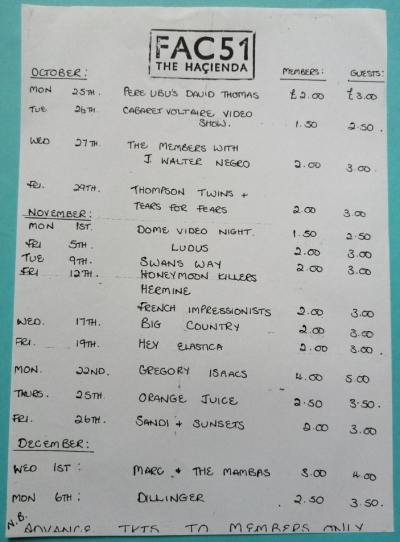 FAC51
THE HAÇIENDA
OCTOBER: MEMBERS: GUESTS:
MON 25TH. PERE UBU'S DAVID THOMAS £2.00 £3.00
TUE 26TH. CABARET VOLTAIRE VIDEO
SHOW. 1.50 2.50.
WED 27TH. THE MEMBERS WITH
J. WALTER NEGRO 2.00 3.00.
FRI. 29TH. THOMPSON TWINS +
TEARS FOR FEARS 2.00 3.00
NOVEMBER:
MON 1ST. DOME VIDEO NIGHT. 1.50 2.50
FRI 5TH. LUDUS 2.00 3.00
TUE 9TH. SWANS WAY 2.00 3.00
FRI 12TH. HONEYMOON KILLERS
HERMINE
FRENCH IMPRESSIONISTS 2.00 3.00
WED. 17TH. BIG COUNTRY 2.00 3.00
FRI. 19TH. HEY ELASTICA 2.00 3.00.
MON. 22ND. GREGORY ISAACS 4.00 5.00
THURS. 25TH. ORANGE JUICE 2.50 3.50.
FRI. 26TH. SANDI + SUNSETS 2.00 3.00
DECEMBER:
WED 1ST: MARC + THE MAMBAS 3.00 4.00
MON 6TH: DILLINGER 2.50 3.50.
N.B.
ADVANCE TKTS TO MEMBERS ONLY